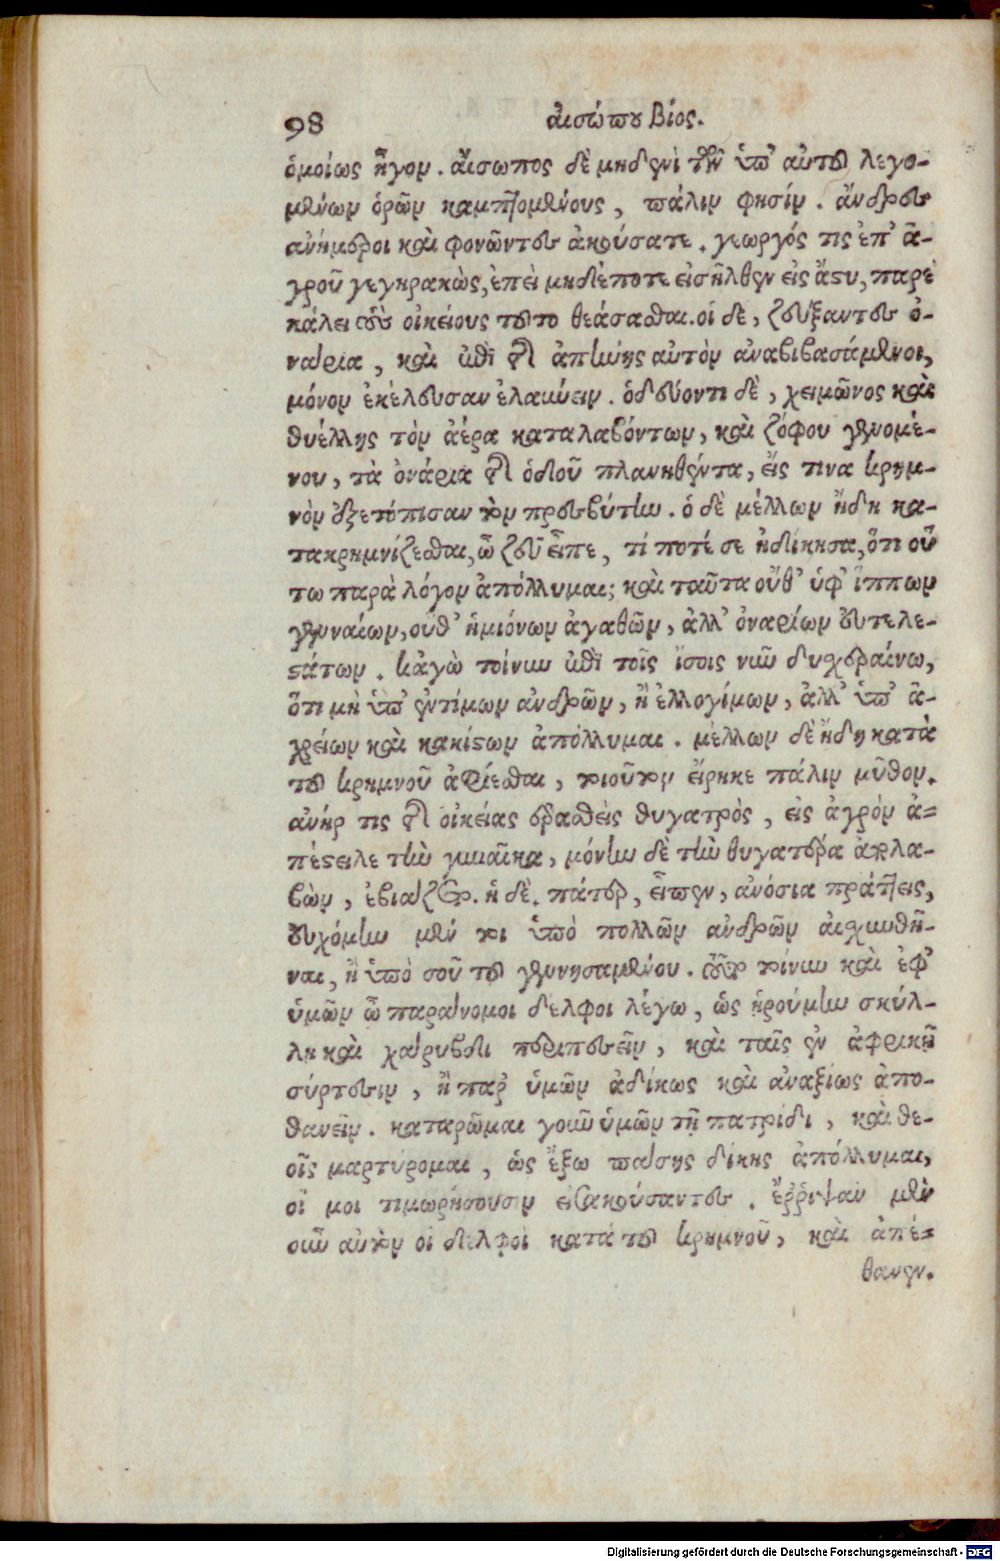 98 αἰσώπου βίος.
ὁμοίως ἦγον. αἴσωπος δὲ μηδενὶ τῶν ὑπ' αὐτοῦ λεγο-
μένων ὁρῶν καμπτομένους, πάλιν φησίν. ἄνδρες
ἀνήμεροι καὶ φονῶντες ἀκούσατε. γεωργός τις ἐπ' ἀ-
γροῦ γεγηρακὼς, ἐπεὶ μηδέποτε εἰσῆλθεν εἰς ἄστυ, παρε
κάλει τοὺς οἰκείους τοῦτο θεάσασθαι. οἱ δὲ, ζεύξαντες ὀ-
νάρια, καὶ ἐπὶ τῆς ἀπήνης αὐτὸν ἀναβιβασάμενοι,
μόνον ἐκέλευσαν ἐλαύνειν. ὁδεύοντι δὲ, χειμῶνος καὶ
θυέλλης τὸν ἀέρα καταλαβόντων, καὶ ζόφου γενομέ-
νου, τὰ ὀνάρια τῆς ὁδοῦ πλανηθέντα, εἴς τινα κρημ-
νὸν ἐξετόπισαν τὸν πρεσβύτην. ὁ δὲ μέλλων ἤδη κα-
τακρημνίζεσθαι, ὦ ζεῦ εἶπε, τί ποτέ σε ἠδίκησα, ὅτι οὕ
τω παρὰ λόγον ἀπόλλυμαι; καὶ ταῦτα οὔθ' ὑφ' ἵππων
γενναίων, οὔθ' ἡμιόνων ἀγαθῶν, ἀλλ' ὀναρίων εὐτελε-
στάτων. κἀγὼ τοίνυν ἐπὶ τοῖς ἴσοις νῦν δυσχεραίνω,
ὅτι μὴ ὑπ' ἐντίμων ἀνδρῶν, ἢ ἐλλογίμων, ἀλλ' ὑπ' ἀ-
χρείων καὶ κακίστων ἀπόλλυμαι. μέλλων δὲ ἤδη κατὰ
τοῦ κρημνοῦ ἀφίεσθαι, τοιοῦτον εἴρηκε πάλιν μῦθον.
ἀνήρ τις τῆς οἰκείας ἐρασθεὶς θυγατρὸς, εἰς ἀγρὸν ἀ-
πέστειλε τὴν γυναῖκα, μόνην δὲ τὴν θυγατέρα ἀπολα-
βὼν, ἐβιάζετο. ἡ δὲ. πάτερ, εἶπεν, ἀνόσια πράττεις,
εὐχόμην μέν τοι ὑπὸ πολλῶν ἀνδρῶν αἰσχυνθῆ-
ναι, ἢ ὑπὸ σοῦ τοῦ γεννησαμένου. τοῦτο τοίνυν καὶ ἐφ'
ὑμῶν ὦ παράνομοι δελφοὶ λέγω, ὡς ᾑρούμην σκύλ-
λῃ καὶ χαρύβδει περιπεσεῖν, καὶ ταῖς ἐν ἀφρικῇ
σύρτεσιν, ἢ παρ' ὑμῶν ἀδίκως καὶ ἀναξίως ἀπο-
θανεῖν. καταρῶμαι γοῦν ὑμῶν τῇ πατρίδι, καὶ θε-
οῖς μαρτύρομαι, ὡς ἔξω πάσης δίκης ἀπόλλυμαι,
οἵ μοι τιμωρήσουσιν εἰσακούσαντες. ἔῤῥιψαν μὲν
οὖν αὐτὸν οἱ δελφοὶ κατὰ τοῦ κρημνοῦ, καὶ ἀπέ-
θανεν.
Digitalisierung gefördert durch die Deutsche Forschungsgemeinschaft - DFG